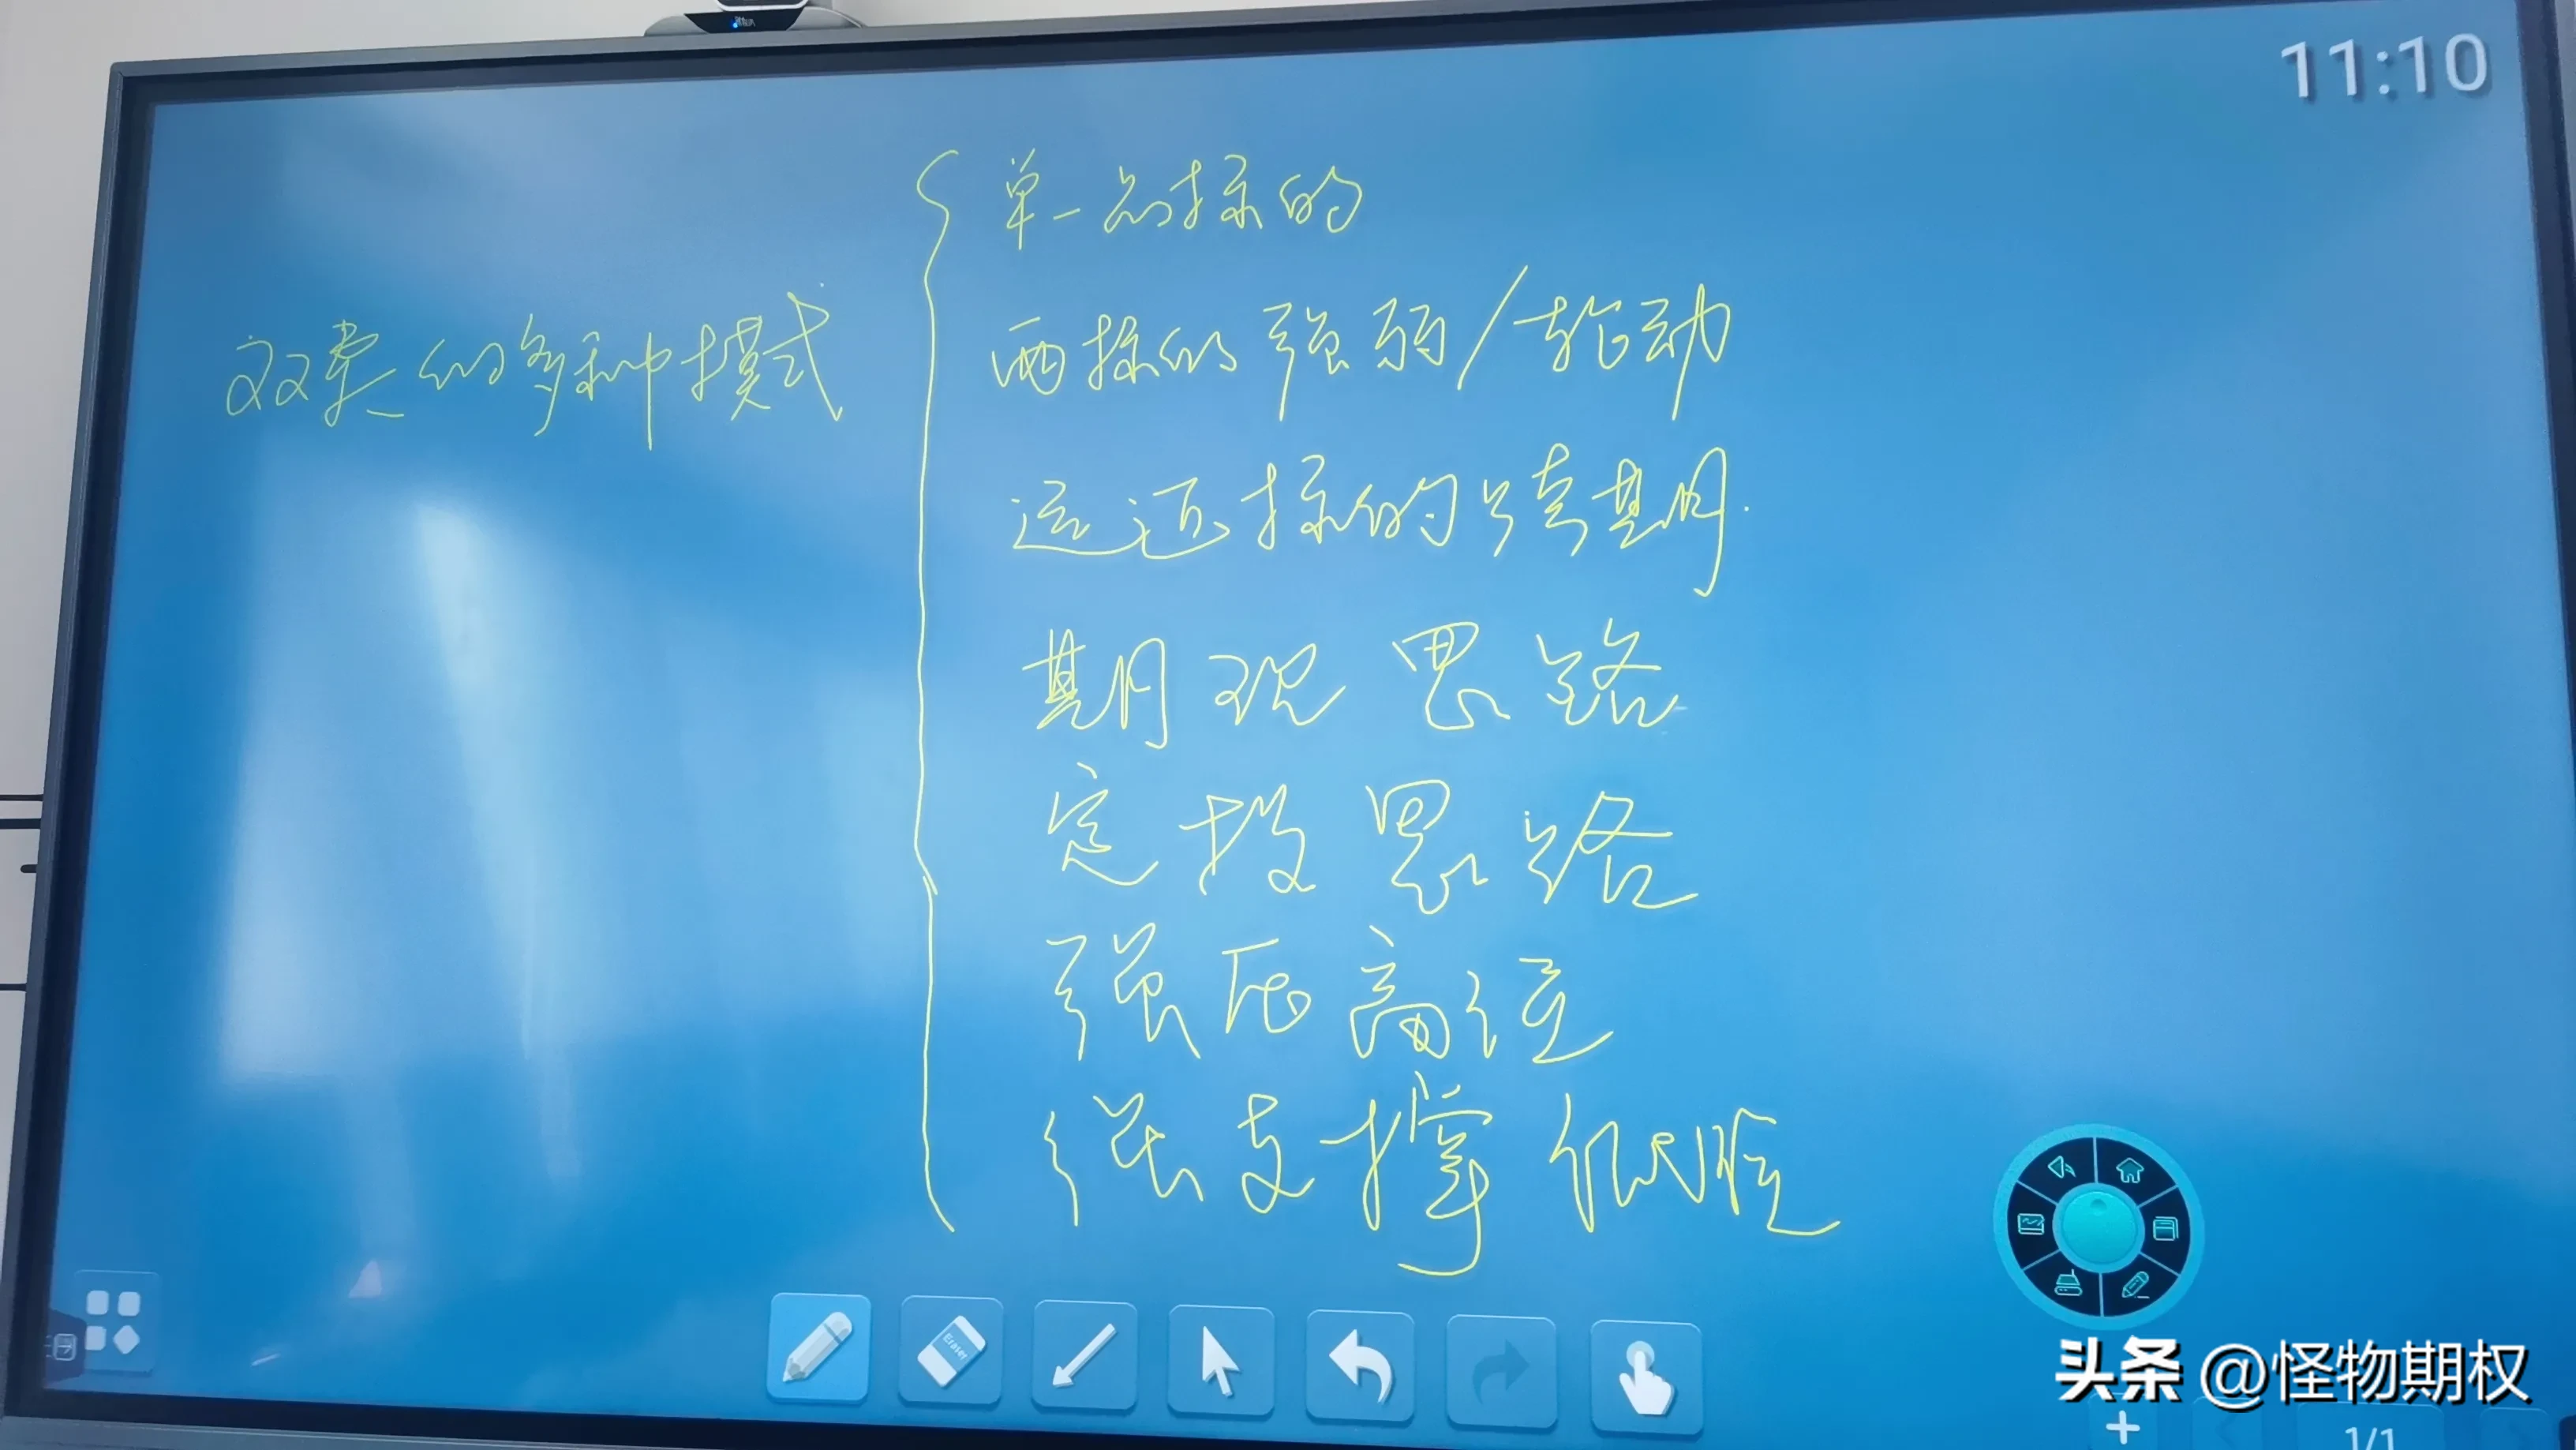 11:10
双卖的多种模式
单一的标的
两标的强弱/轮动
远近标的跨期
期现思路
定投思路
强压高位
强支撑低位
Eraser
头条 @怪物期权
1/1